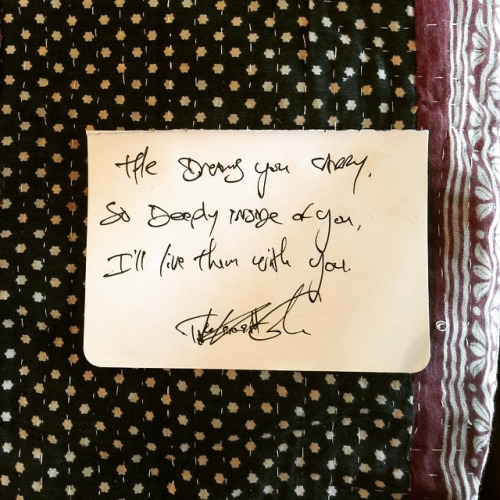 The Dreams you carry,
So Deeply inside of you,
I'll live them with you.